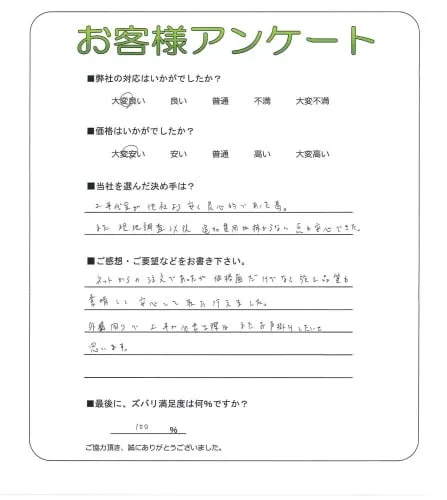 お客様アンケート
■弊社の対応はいかがでしたか？
大変良い 良い 普通 不満 大変不満
■価格はいかがでしたか？
大変安い 安い 普通 高い 大変高い
■当社を選んだ決め手は？
工事代金が他社より安く良心的であった為。
また現地調査以後追加費用が掛からない点も安心できた。
■ご感想・ご要望などをお書き下さい。
ネットからの注文であったが価格面だけでなく施工品質も
素晴しく安心して取引行えました。
外構周りで工事が必要な際はまたお声掛けしたいと
思います。
■最後に、ズバリ満足度は何％ですか？
100 %
ご協力頂き、誠にありがとうございました。